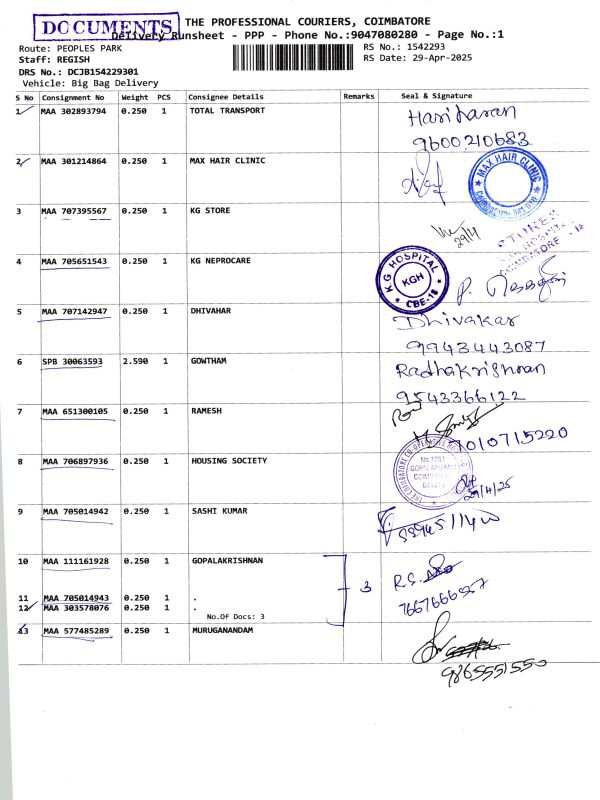 DOCUMENTS
THE PROFESSIONAL COURIERS, COIMBATORE
Delivery Runsheet - PPP - Phone No.:9047080280 - Page No.:1
Route: PEOPLES PARK
RS No.: 1542293
Staff: REGISH
RS Date: 29-Apr-2025
DRS No.: DCJB154229301
Vehicle: Big Bag Delivery
S No Consignment No Weight PCS Consignee Details Remarks Seal & Signature
1 MAA 302893794 0.250 1 TOTAL TRANSPORT Hariharan
9600210683
2 MAA 301214864 0.250 1 MAX HAIR CLINIC MAX HAIR CLINIC
3 MAA 707395567 0.250 1 KG STORE
29/4
STORES
HOSPITAL
COIMBATORE - 18
4 MAA 705651543 0.250 1 KG NEPROCARE K G HOSPITAL
KGH
CBE-18
5 MAA 707142947 0.250 1 DHIVAHAR Dhivakar
9943443087
6 SPB 30063593 2.590 1 GOWTHAM Radhakrishnan
9543366122
7 MAA 651300105 0.250 1 RAMESH
7010715220
8 MAA 706897936 0.250 1 HOUSING SOCIETY
No 1031
29/4/25
9 MAA 705014942 0.250 1 SASHI KUMAR
10 MAA 111161928 0.250 1 GOPALAKRISHNAN
3 R.S.
11 MAA 705014943 0.250 1 . 7667666557
12 MAA 303578076 0.250 1 .
No.Of Docs: 3
13 MAA 577485289 0.250 1 MURUGANANDAM
9865551550